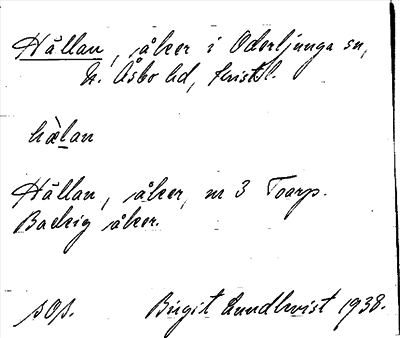 Hållan, åker i Oderljunga sn,
N. Åsbo hd, Kristl.
hàlan
Hållan, åker, nr 3 Toarp.
Backig åker.
sOs.
Birgit Lundkvist 1938.